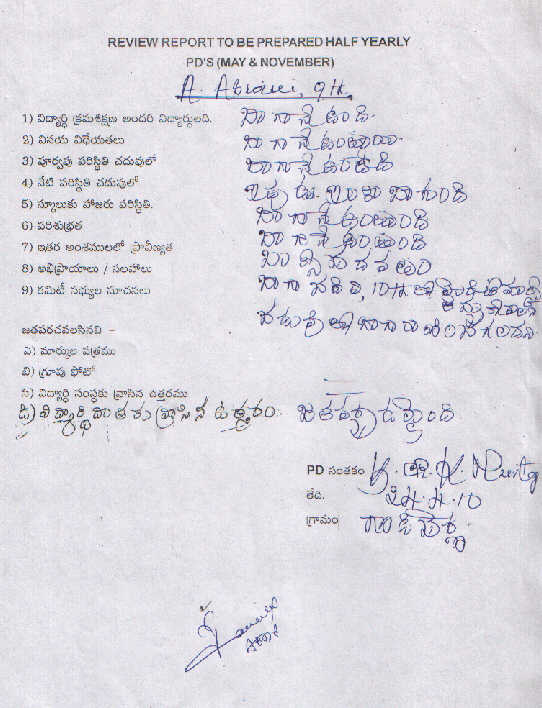 REVIEW REPORT TO BE PREPARED HALF YEARLY
PD'S (MAY & NOVEMBER)
A. 9th.
1) విద్యార్థి క్రమశిక్షణ అందరి విద్యార్థులది. బాగానే ఉంది.
2) వినయ విధేయతలు బాగానే ఉంటాయి.
3) పూర్వపు పరిస్థితి చదువులో బాగానే ఉండేది
4) నేటి పరిస్థితి చదువులో ఇప్పుడు ఇంకా బాగుంది
5) స్కూలుకు హాజరు పరిస్థితి. బాగానే ఉంటుంది
6) పరిశుభ్రత బాగానే ఉంటుంది
7) ఇతర అంశములలో ప్రావీణ్యత
8) అభిప్రాయాలు / సలహాలు బాగా చదివి, 10th లో
9) కమిటీ సభ్యుల సూచనలు
జతపరచవలసినవి –
ఎ) మార్కుల పత్రము
బి) గ్రూపు ఫోటో
సి) విద్యార్థి సంస్థకు వ్రాసిన ఉత్తరము
డి) విద్యార్థి దాతకు వ్రాసిన ఉత్తరం
PD సంతకం
తేది. 24.4.10
గ్రామం